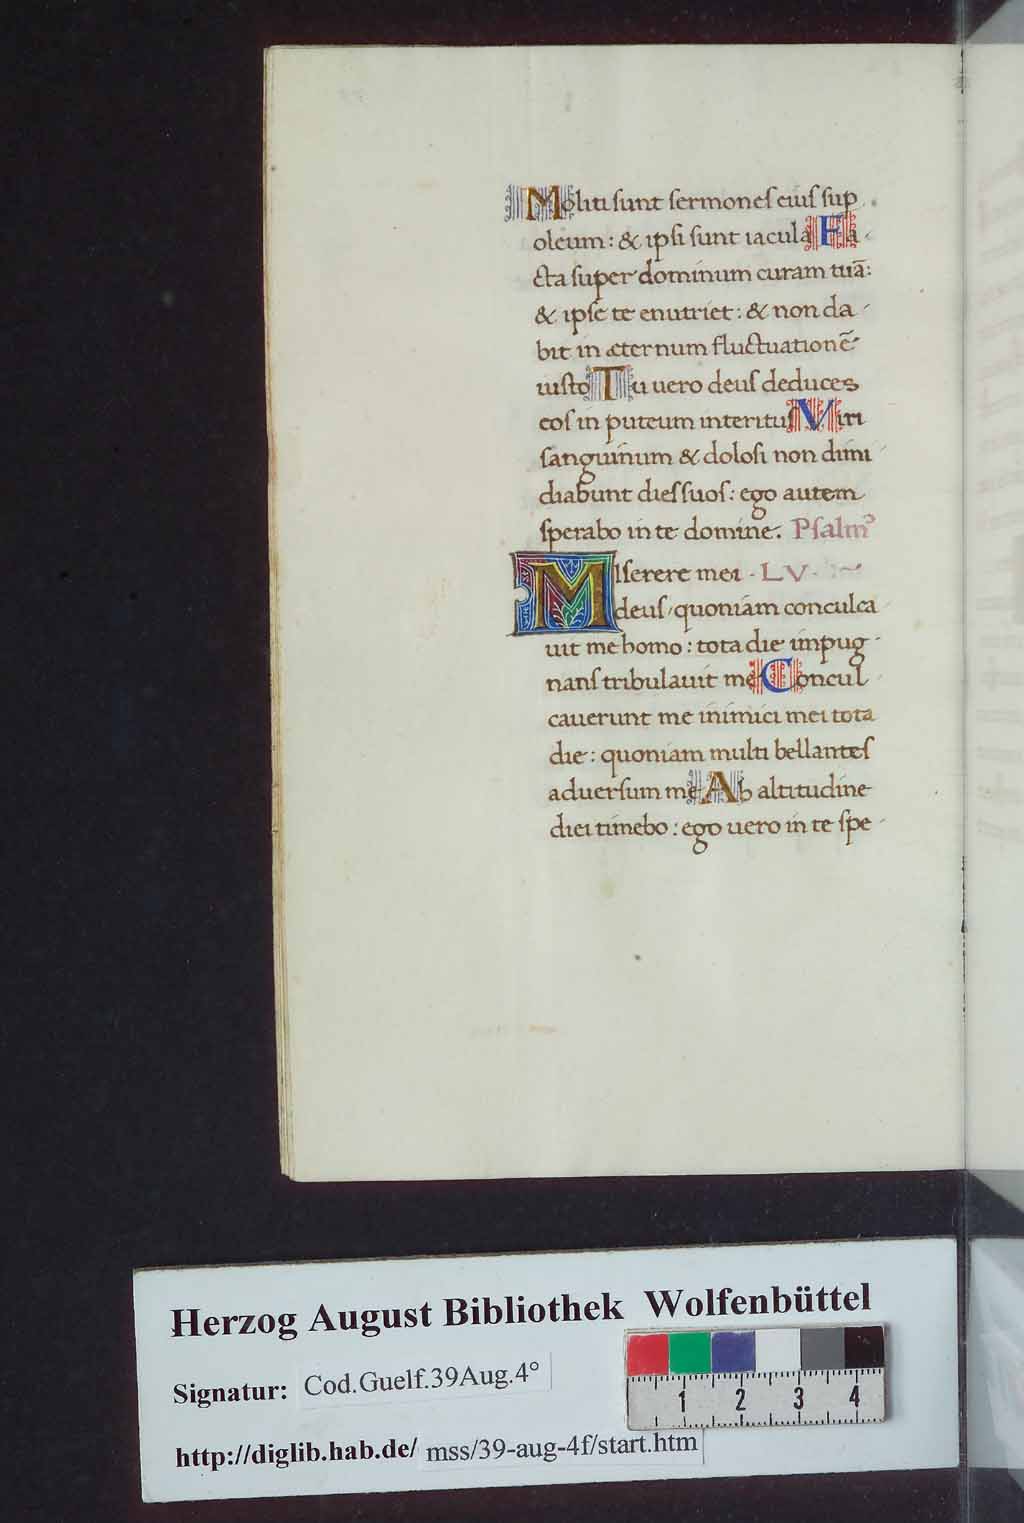 Moliti sunt sermones eius sup
oleum: & ipsi sunt iacula Ia-
cta super dominum curam tuā:
& ipse te enutriet: & non da-
bit in æternum fluctuationē
iusto Tu uero deus deduces
eos in puteum interitus Viri
sanguinum & dolosi non dimi-
diabunt dies suos: ego autem
sperabo in te domine. Psalmꝰ
MIserere mei ·LV·
deus, quoniam conculca
uit me homo: tota die impug-
nans tribulauit me Concul-
cauerunt me inimici mei tota
die: quoniam multi bellantes
aduersum me Ab altitudine
diei timebo: ego uero in te spe-
Herzog August Bibliothek Wolfenbüttel
Signatur: Cod.Guelf.39Aug.4°
http://diglib.hab.de/ mss/39-aug-4f/start.htm
1 2 3 4